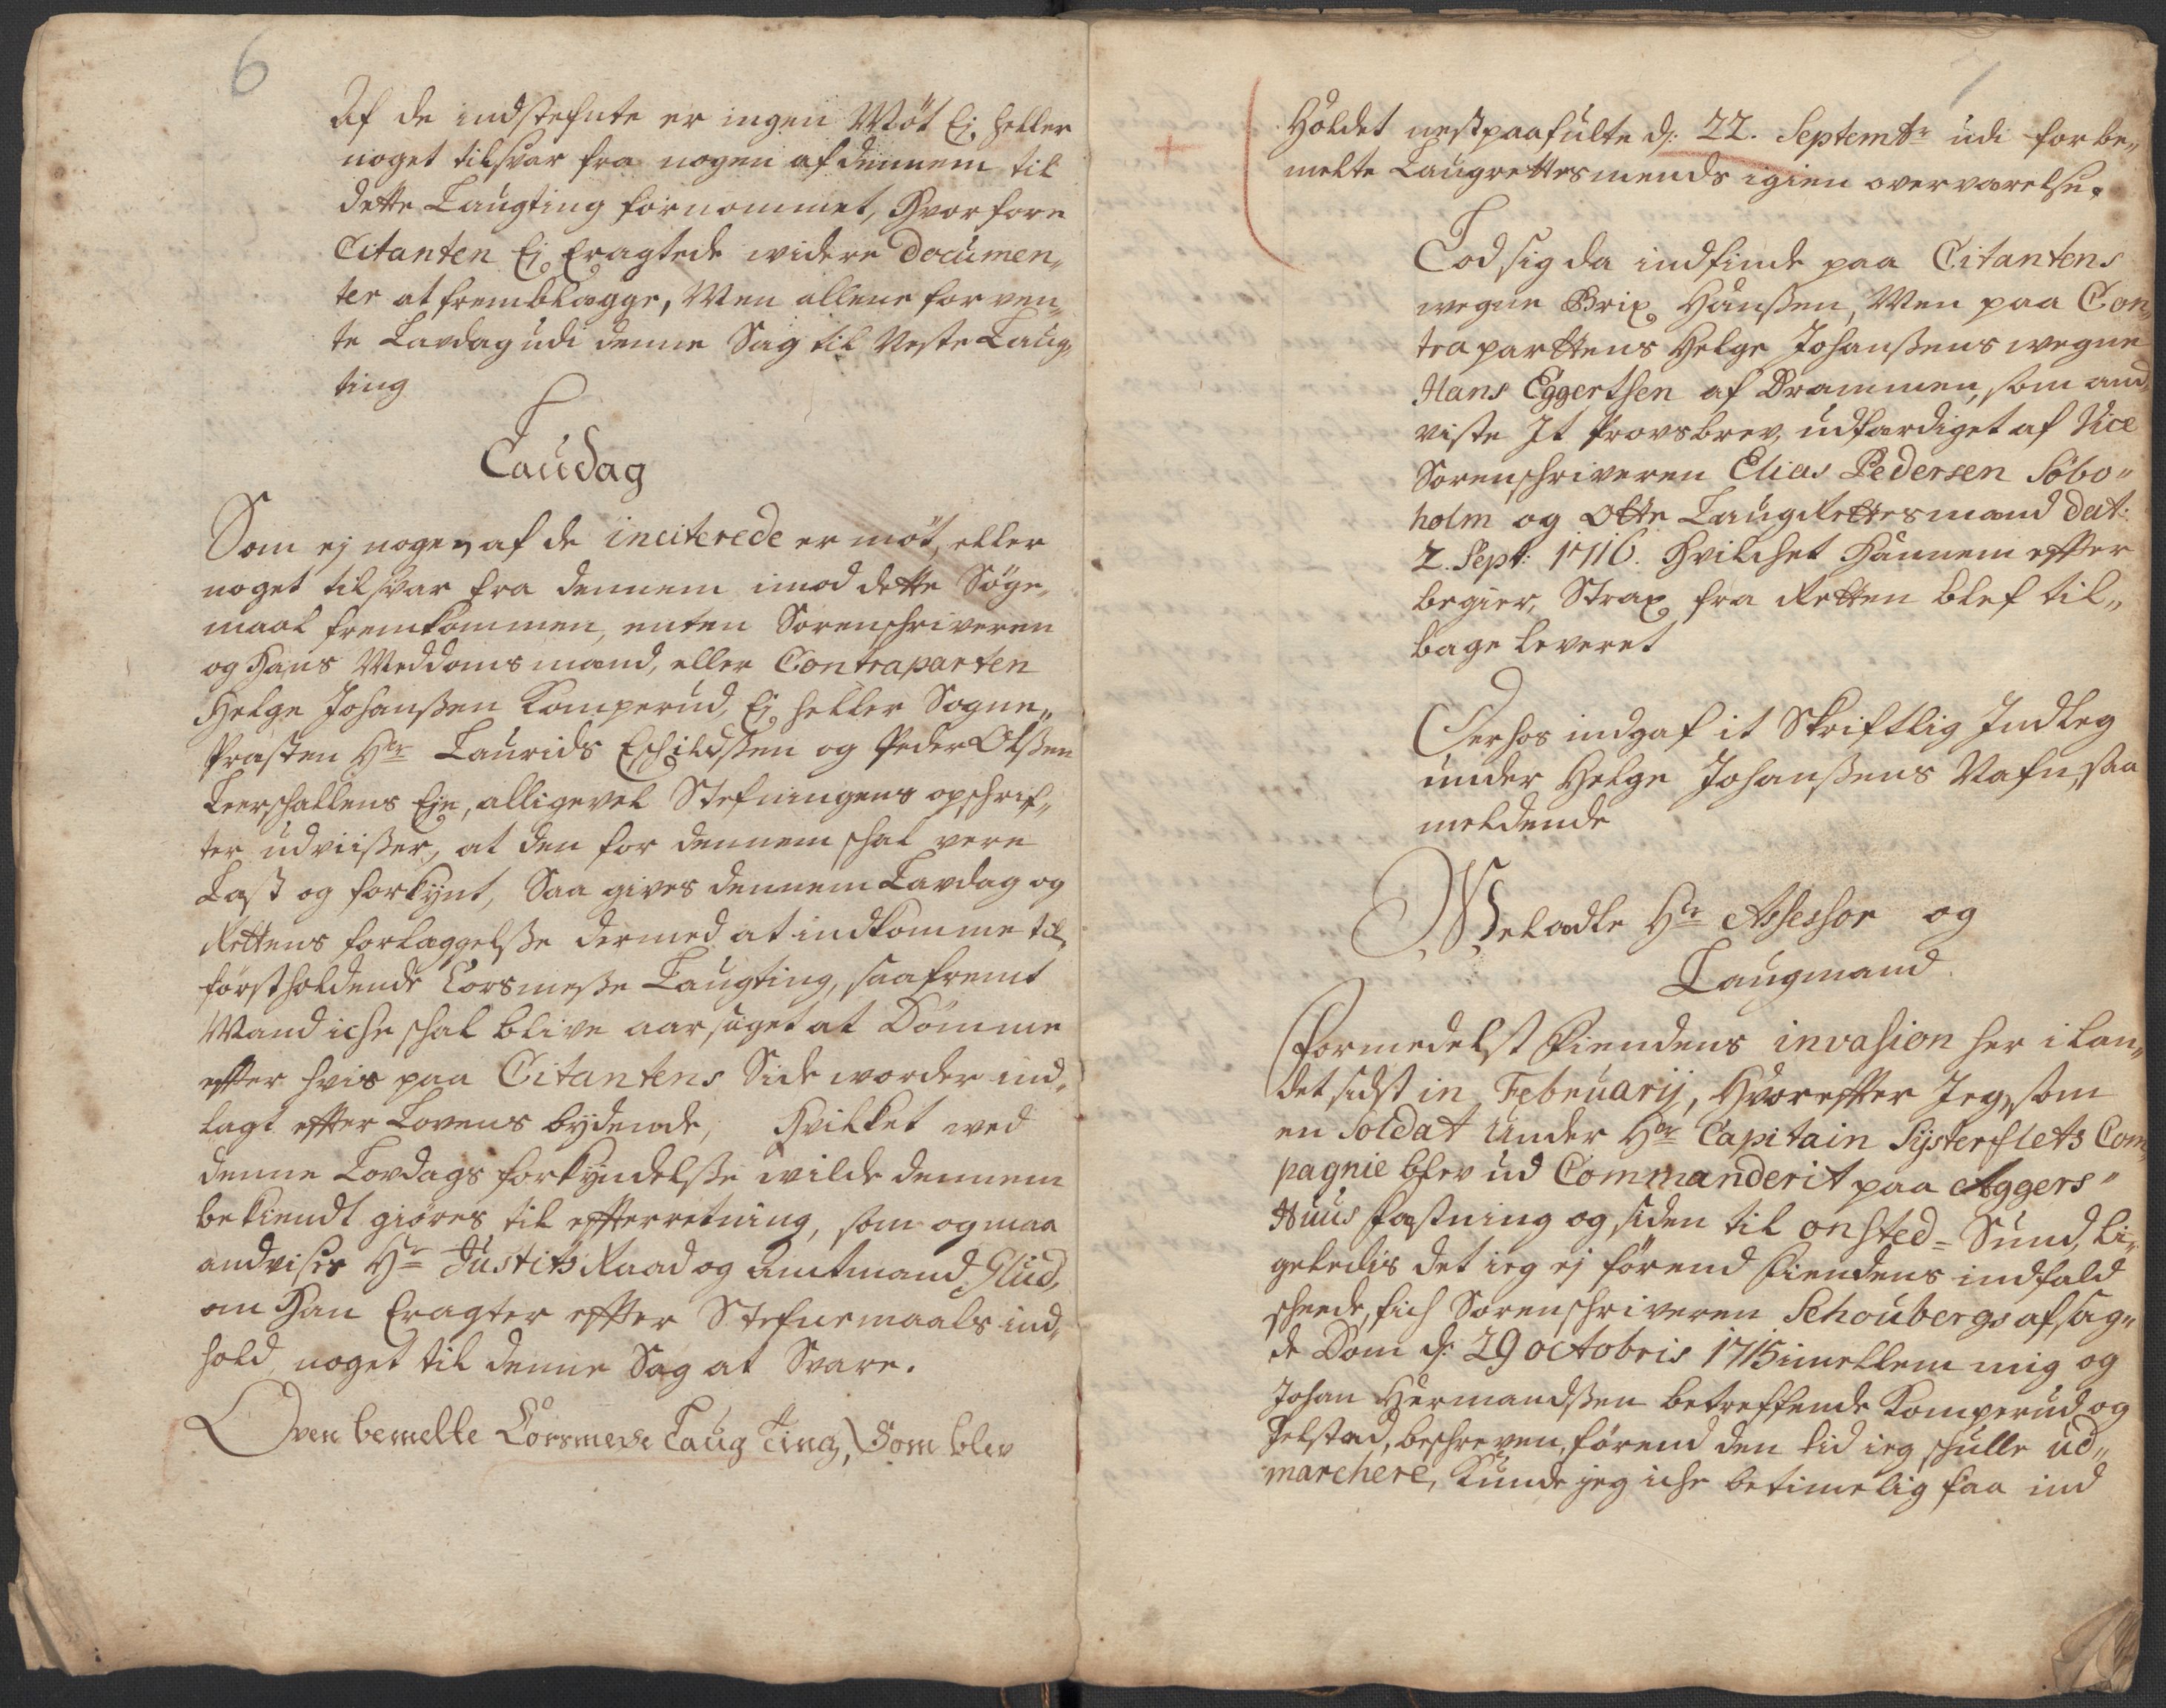 6
Af de indstefnte er ingen Møt Ej heller
noget tilsvar fra nogen af dennem til
dette Laugting fornommet, hvorfore
Citanten Ej Eragtede widere Documen„
ter at fremblægge, Men allene forven„
te Lavdag udi denne Sag til Neste Laug„
ting
Laudag
Som ej nogen af de inciterede er møt, eller
noget tilsvar fra dennem imod dette Søge„
maal fremkommen, enten Sorenschriveren
og hans Meddomsmænd, eller Contraparten
Helge Johanßen Komperud, Ej heller Sogne„
Præsten Hr Laurids Eschildßen og Peder Olßen
Leerschallens Eje, alligevel Stefningens opschrif„
ter udviißer, at den for dennem schal vere
Læst og forkynt, Saa gives dennem Lavdag og
Rettens forlæggelße dermed at indkomme til
førstholdende Corsmeße Laugting, saafremt
Mand iche schal blive aarsaget at Dømme
effter hvis paa Citantens Side worder ind„
lagt effter Lovens bydende, hvilket med
denne Lovdags forkyndelße wilde dennem
bekiendt giøres til effterretning, som og maa
andvises Hr Justitz Raad og Amtmand Glud,
om han Eragter effter Stefnemaals ind„
hold noget til denne Sag at Svare.
Oven bemelte Corsmese Laug Ting, Som blev
7
Holdet nestpaafulte d: 22. Septembr udi forbe„
melte Laugrettesmends igien overværelse.
Lod sig da indfinde paa Citantens
wegne Brix Hanßen, Men paa Con„
traparttens Helge Johanßens wegne
Hans Eggertsen af Drammen, som and„
viste It Provsbrev, udfærdiget af Vice
Sorenschriveren Elias Pedersen Søbo„
holm og Otte LaugRettesmænd dat:
2. Sept: 1716. hvilchet hannem effter
begier, Strax fra Retten blef til„
bage leveret
Derhos indgaf it Skriftlig Indleg
under Helge Johanßens Nafn, saa
meldende
Welædle Hr Assessor og
Laugmand
Formedelst Fiendens invasion her i Lan„
det sidst in Februarij, Hvoreffter Jeg, som
en Soldat Under Hr Capitain Systerflets Com„
pagnie blev ud Commanderit paa Aggers„
Huus Fæstning og siden til onsted=Sund, li„
geledis det ieg ej førend Fiendens indfald
scheede, fich Sorenschriveren Schoubergs afsag„
de Dom d: 29 octobris 1715 imellem mig og
Johan Hermandßen betreffende Komperud og
Jelstad, beschreven, førend den tid ieg schulle ud„
marchere, Kunde jeg iche betimelig faa ind